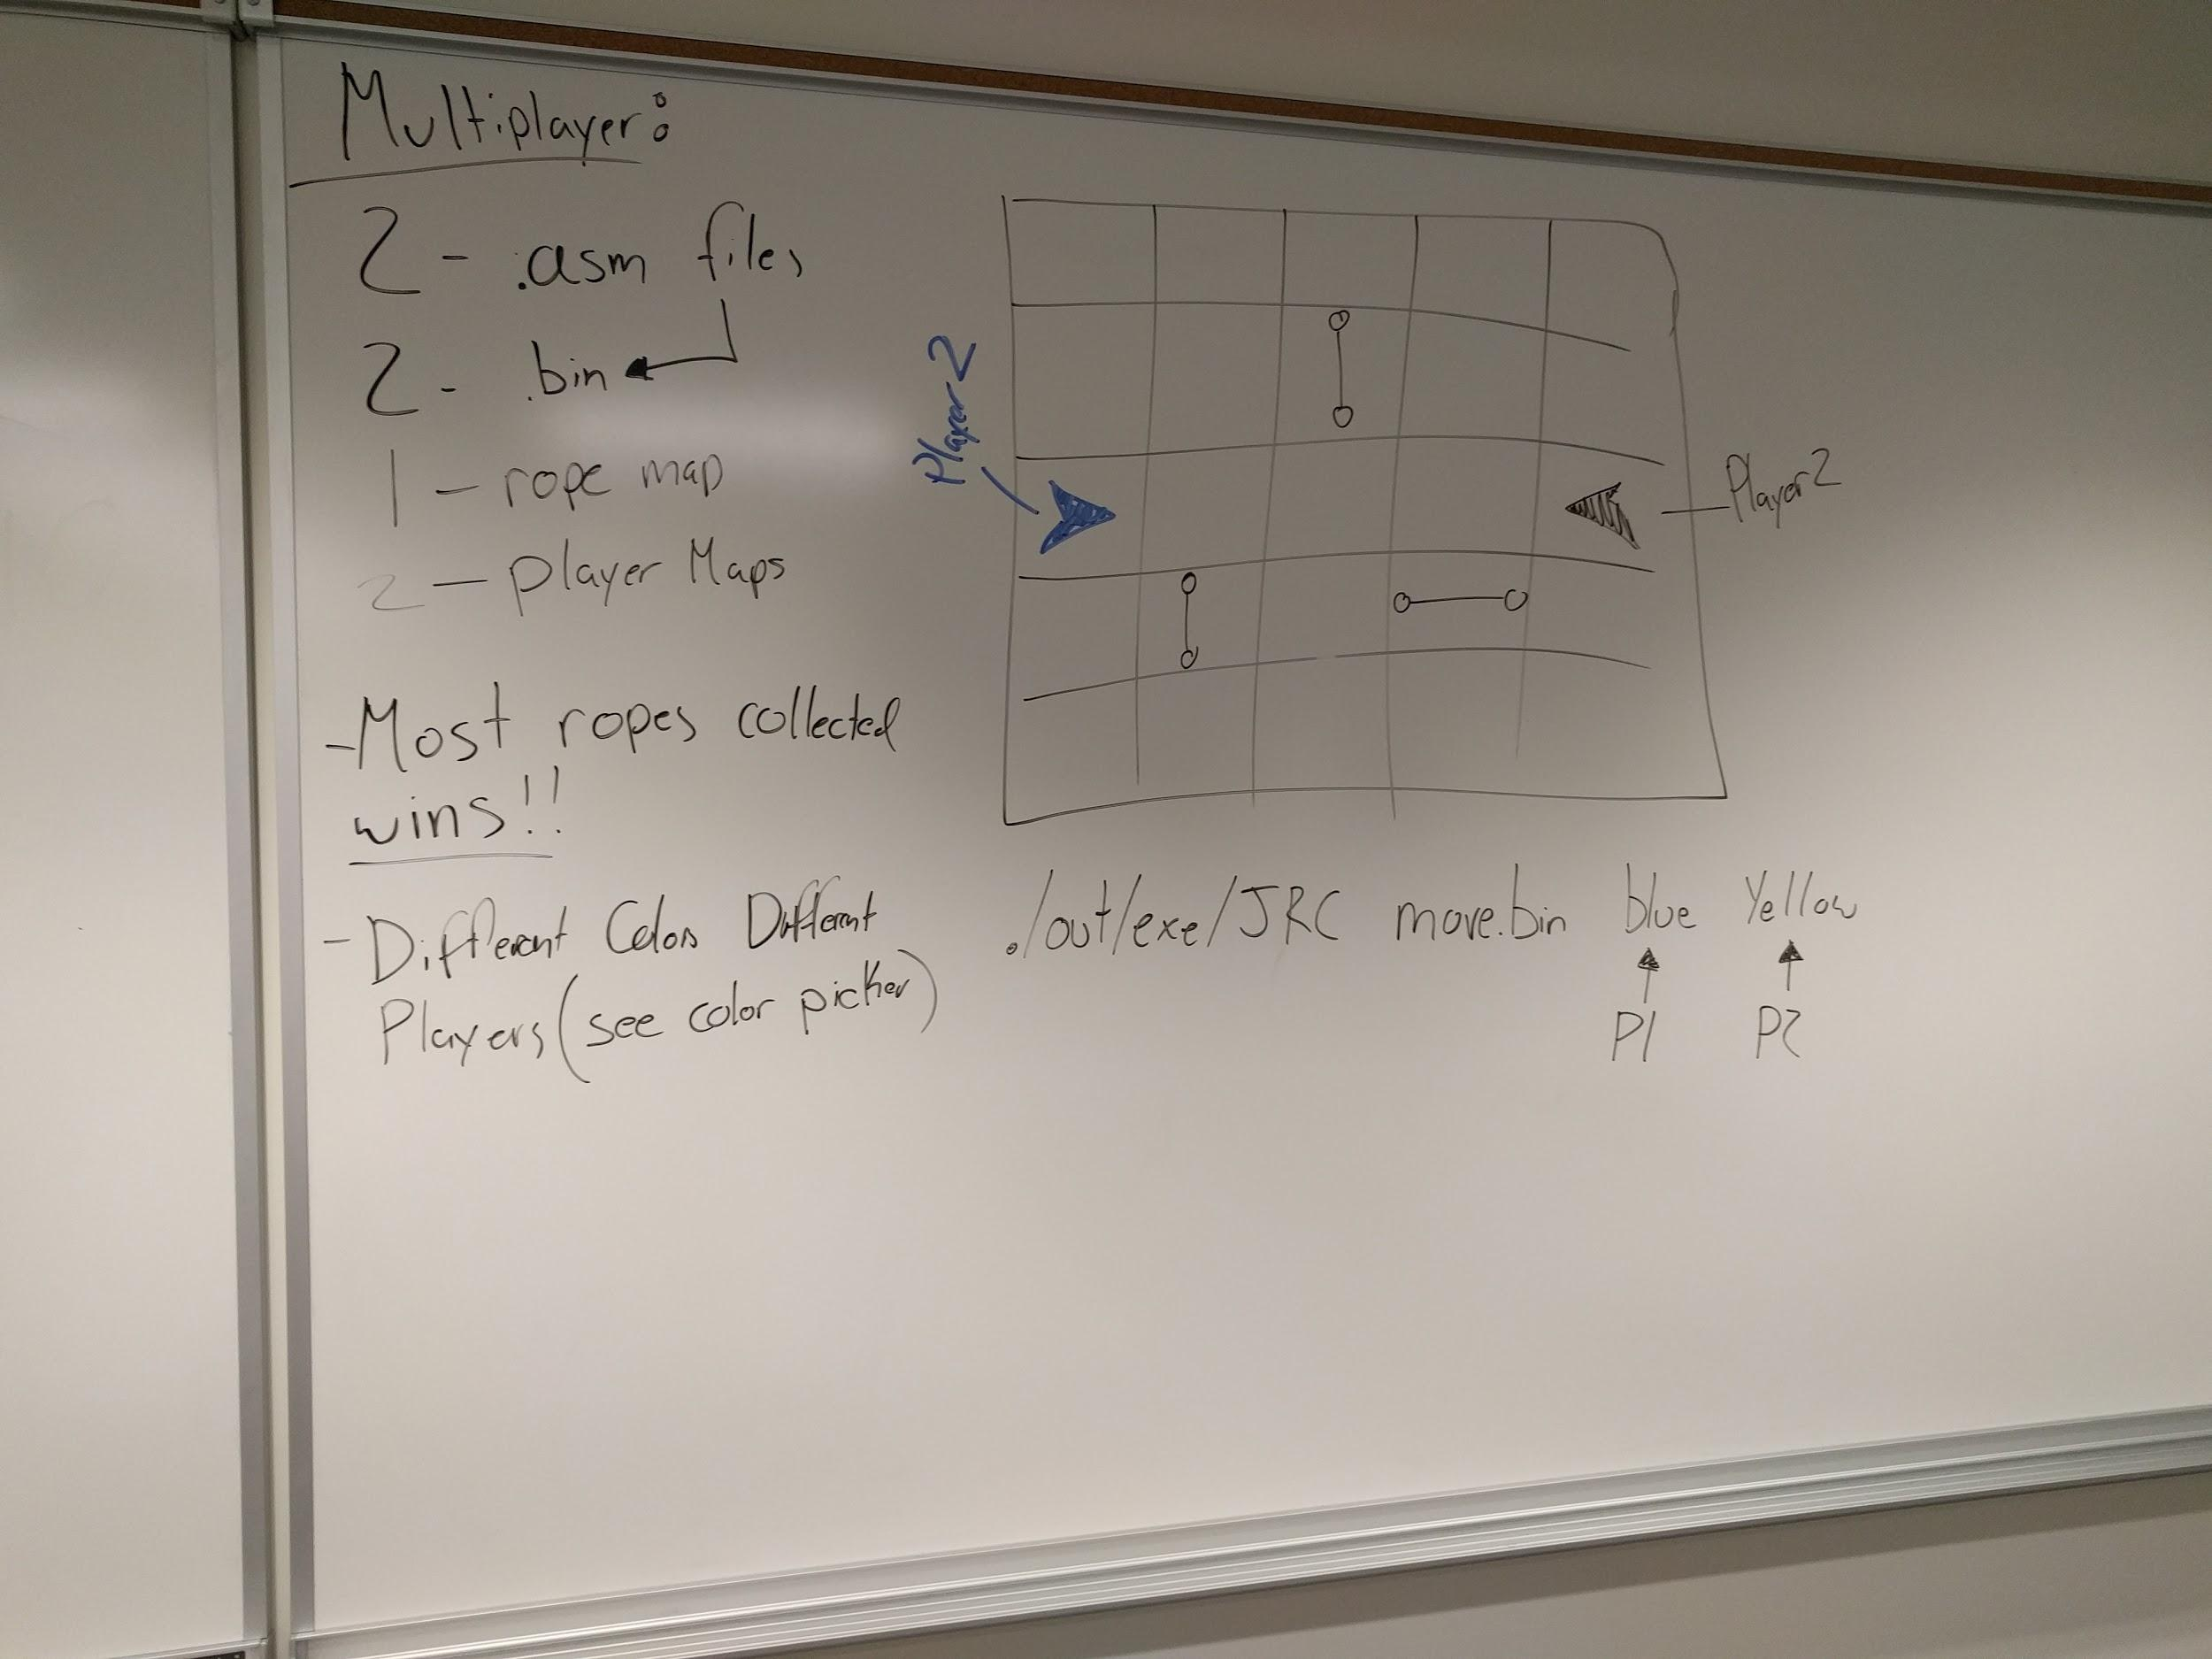 Multiplayer:
2 - .asm files
2 - .bin
1 - rope map
2 - Player Maps
- Most ropes collected
wins!!
- Different Colors Different
Players (see color picker)
Player 2
Player 2
./out/exe/JRC move.bin blue Yellow
P1 P2